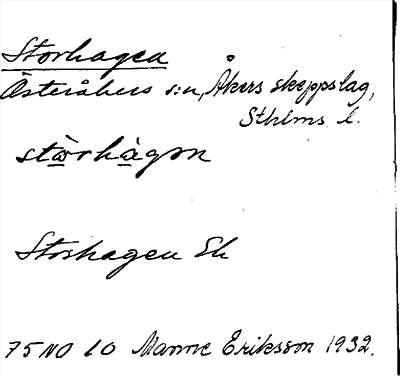 Storhagen
Österåkers s:n, Åkers skeppslag,
Sthlms l.
stòrhàgɔn
Storhagen Ek
75 NO 10 Manne Eriksson 1932.